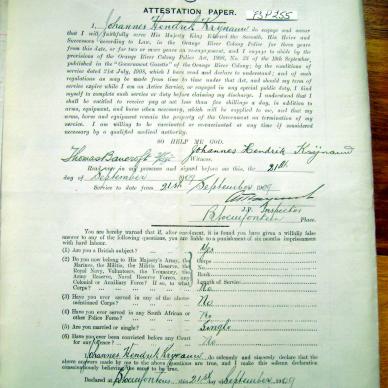 ATTESTATION PAPER.
PSP 255
I, Johannes Hendrik Krynauw do engage and swear
that I will faithfully serve His Majesty King Edward the Seventh, His Heirs and
Successors according to Law, in the Orange River Colony Police for three years
from this date, or for two or more years on re-engagement, and I engage to abide by the
provisions of the Orange River Colony Police Act, 1908, No. 23 of the 18th September,
published in the "Government Gazette" of the Orange River Colony; by the conditions
of service dated 31st July, 1908, which I have read and declare to understand; and of such
regulations as may be made from time to time under that Act, and should my term of
service expire while I am on Active Service, or engaged in any special Police duty, I bind
myself to complete such service or duty before claiming my Discharge. I understand that I
shall be entitled to receive pay at not less than five shillings a day, in addition to
arms, equipment, and horse when necessary, which will be supplied to me, and that my
arms, horse and equipment remain the property of the Government on termination of my
service. I am willing to be vaccinated or re-vaccinated at any time if considered
necessary by a qualified medical authority.
SO HELP ME GOD.
Johannes Hendrik Krynauw
Thomas Bancroft Witness.
Read over in my presence and signed before me this, the 21st
day of September 1909
Service to date from 21st September 1909
J.P. Inspector
Bloemfontein Place.
You are hereby warned that if, after enrolment, it is found you have given a wilfully false
answer to any of the following questions, you are liable to a punishment of six months imprisonment
with hard labour.
(1) Are you a British subject? Yes
(2) Do you now belong to His Majesty's Army, the
Marines, the Militia, the Militia Reserve, the
Royal Navy, Volunteers, the Yeomanry, the
Army Reserve, Naval Reserve Forces, any
Colonial or Auxiliary Force? If so, to what
Corps?
Corps
No.
Rank
Length of Service
No
(3) Have you ever served in any of the above-
mentioned Corps? No
(4) Have you ever served in any South African or
other Police Force? No
(5) Are you married or single? Single
(6) Have you ever been convicted by any Court
for any offence? No
I, Johannes Hendrik Krynauw, do solemnly and sincerely declare that the
above answers made by me to the above questions are true, and I make this solemn declaration
conscientiously believing the same to be true.
Declared at Bloemfontein this 21st day of September 1909